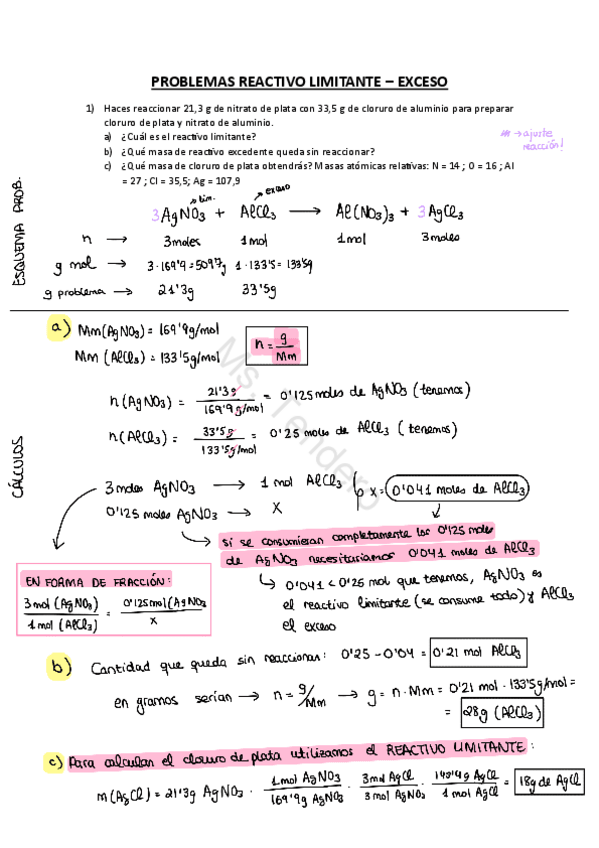 PROBLEMAS REACTIVO LIMITANTE – EXCESO
1) Haces reaccionar 21,3 g de nitrato de plata con 33,5 g de cloruro de aluminio para preparar
cloruro de plata y nitrato de aluminio.
a) ¿Cuál es el reactivo limitante?
b) ¿Qué masa de reactivo excedente queda sin reaccionar?
c) ¿Qué masa de cloruro de plata obtendrás? Masas atómicas relativas: N = 14 ; O = 16 ; Al
= 27 ; Cl = 35,5; Ag = 107,9
→ ajuste
reacción!
ESQUEMA PROB.
lim. exceso
3AgNO3 + AlCl3 → Al(NO3)3 + 3AgCl3
n → 3moles 1mol 1mol 3moles
g mol → 3·169'9=509'7g 1·133'5=133'5g
g problema → 21'3g 33'5g
CÁLCULOS
a) Mm(AgNO3)= 169'9g/mol
Mm (AlCl3)=133'5g/mol
n = g/Mm
n(AgNO3) = 21'3g / 169'9g/mol = 0'125 moles de AgNO3 (tenemos)
n(AlCl3) = 33'5g / 133'5g/mol = 0'25 moles de AlCl3 (tenemos)
3moles AgNO3 → 1 mol AlCl3
0'125 moles AgNO3 → X
x = 0'041 moles de AlCl3
si se consumieran completamente los 0'125 moles
de AgNO3 necesitariamos 0'041 moles de AlCl3
EN FORMA DE FRACCIÓN:
3mol (AgNO3) / 1mol (AlCl3) = 0'125mol(AgNO3 / x
0'041 < 0'25 mol que tenemos, AgNO3 es
el reactivo limitante (se consume todo) y AlCl3
el exceso
b) Cantidad que queda sin reaccionar: 0'25 - 0'04 = 0'21 mol AlCl3
en gramos serían → n = g/Mm → g = n·Mm = 0'21 mol · 133'5g/mol =
= 28g (AlCl3)
c) Para calcular el cloruro de plata utilizamos el REACTIVO LIMITANTE:
m(AgCl) = 21'3g AgNO3 · 1mol AgNO3 / 169'9g AgNO3 · 3mol AgCl / 3mol AgNO3 · 143'4g AgCl / 1mol AgCl = 18g de AgCl
Ms. Tendero